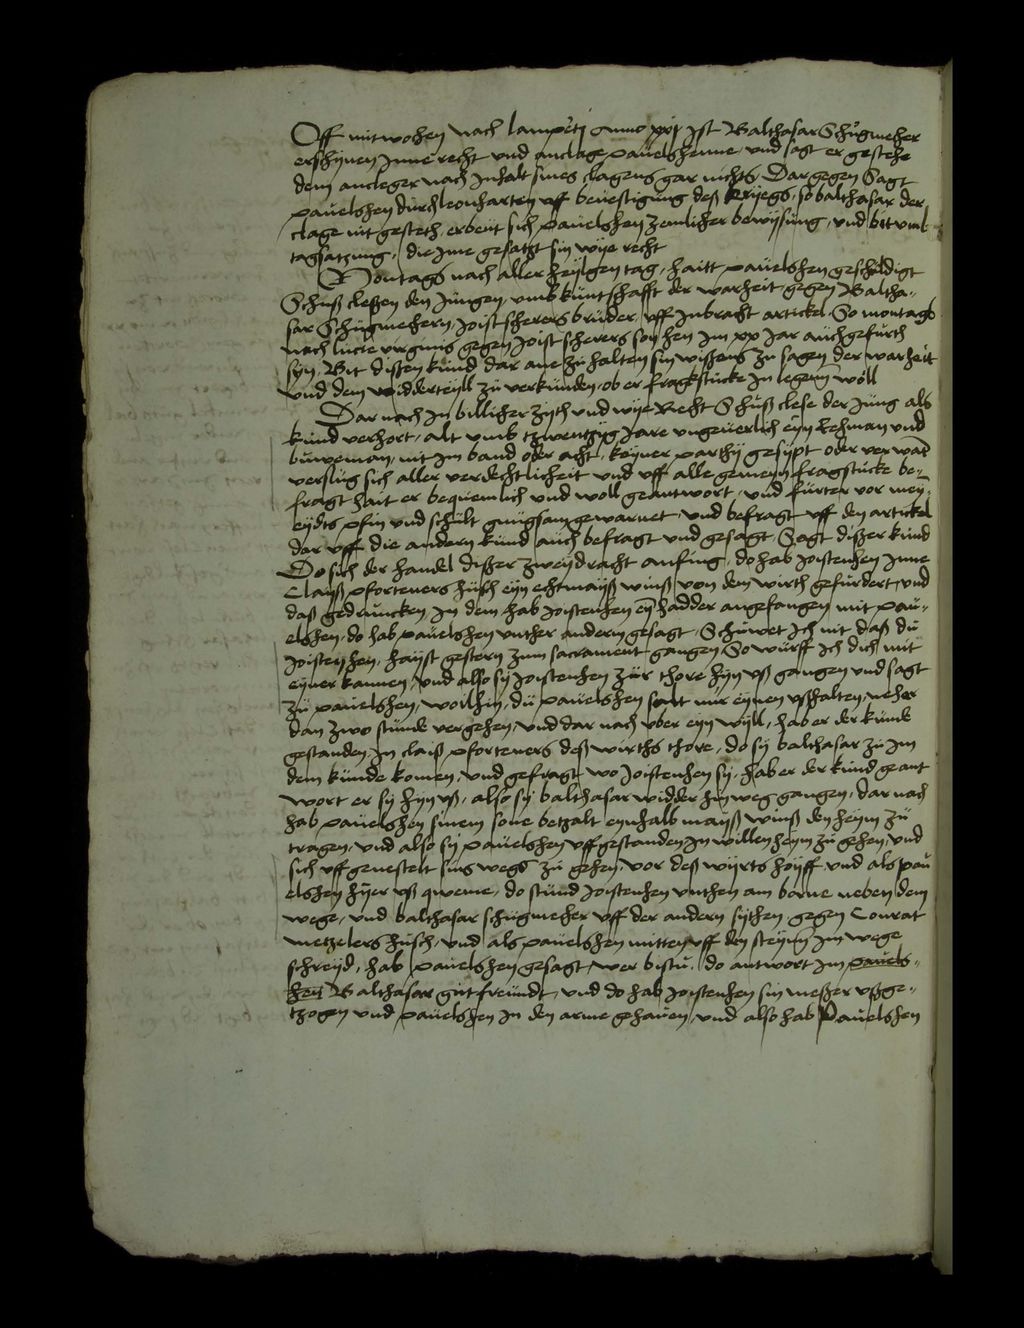 Off mitwochen nach lamperti Anno xxj Ist Balthasar Schugmeher
erschijnen Inne recht und anclage pauelshenne, und sagt er gestehe
dem ancleger nach Inhalt sines clagens gar nichts, Dar gegen Sagt
pauelshen durch leonharten uff beuestigung deß krijegs, so balthasar der
clage nit gesteth, erbeut sich pauelshen zemlicher bewijsung, und bit umb
tagsatzung, die Ime gesatzt sin wije recht
Montags nach aller heijlgen tag, haitt pauelshen geschuldigt
Schuß cleßen den Jungen, umb kuntschafft der warheit gegen Baltha-
sar Schugmehern, Joist scherers bruder, uff Inbracht artickel So montags
nach lucie virginis gegen Joist scherers son hen Im xx Jar auch gefurth
syn, Bit dissen kund dar ane zu halten sin wissens zu sagen der warheit
und dem widderteijll zu verkunden, ob er fragstucke In legenn woll
Dar nach In billicher zijth und wije Recht Schuß clese der Jung als
kund verhort, alt umb tzwentzyg Jare ungeuerlich eyn lehman und
buweman, nit Im band oder acht, keyner parthij gesijpt oder verwant
verslug sich aller verdechtlicheit und uff alle gemeyn fragstucke be-
fragt hait er bequemlich und woll geantwort, und furter vor mey-
eydts pfin und schult gnugsam gewarnet, und befragt uff den artickel
dar uff die andern kund auch befragt und gesagt, Sagt dißer kund
Do sich der handel dißer zweydracht anfing, do hab Joistenhen Inne
Clauß pforteners husch eyn echtmayß winß von dem wirth gefurdert, und
daß gedruncken, In dem hab Joistenhen eyn hadder angefangen mit pau-
elshen, do hab pauelshen unther andern gesagt, Schuwet Ich nit daß du
Joisten hen, hayst gestern zum sacrament gangen So wurff Ich dich mit
eyner kannen, und also sy Joistenhen zur thore hyn uß gangen und sagt
zu pauelshen, wollhin, du pauelshen salt mir eynen ußhalten, neher
dan zwo stunde vergehen, und dar nach uber eyn wyll, hab er der kunde
gestanden In claiß pforteners deß wirths thore, do sy balthasar zu Im
dem kunde komen, und gefragt wo Joistenhen sy, hab er der kund geant
wort er sy hyn uß, also sy balthasar widder hin weg gangen, dar nach
hab pauelshen sinem sone betzalt eynhalb mayß winß den heym zu
tragen, und also sy pauelshen uffgestanden In willen heym zu gehen, und
sich uff genestelt sins wegs zu gehen, vor deß wyrts hoyff, und als pau
elshen hyer uß queme, do stund Joistenhen unthen am borne neben dem
wege, und balthasar schugmeher uff der andern sythen gegen Conrat
metzelers husch, und als pauelshen mitten uff den steynn Im wege
schreyd, hab pauelshen gesagt wer bistu, do antwort Im pauels-
hen Balthasar gut freundt, und do hab Joistenhen sin meßer ußge-
tzogen und pauelshen In den arme gehauen, und also hab Pauelshen